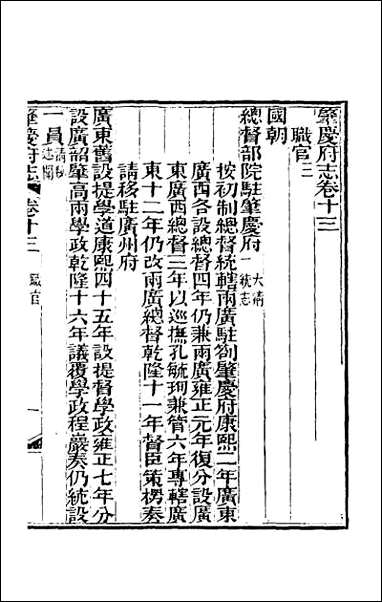 肇慶府志卷十三
職官三
國朝
總督部院駐肇慶府大清一統志
按初制總督統轄兩廣駐劄肇慶府康熙二年廣東
廣西各設總督四年仍兼兩廣雍正元年復分設廣
東廣西總督三年以巡撫孔毓珣兼管六年專轄廣
東十二年仍改兩廣總督乾隆十一年督臣策楞奏
請移駐廣州府
廣東舊設提學道康熙四十五年設提督學政雍正七年分
設廣韶肇高兩學政乾隆十六年議覆學政程巖奏仍統設
一員
肇慶府志 卷十三 職官 一